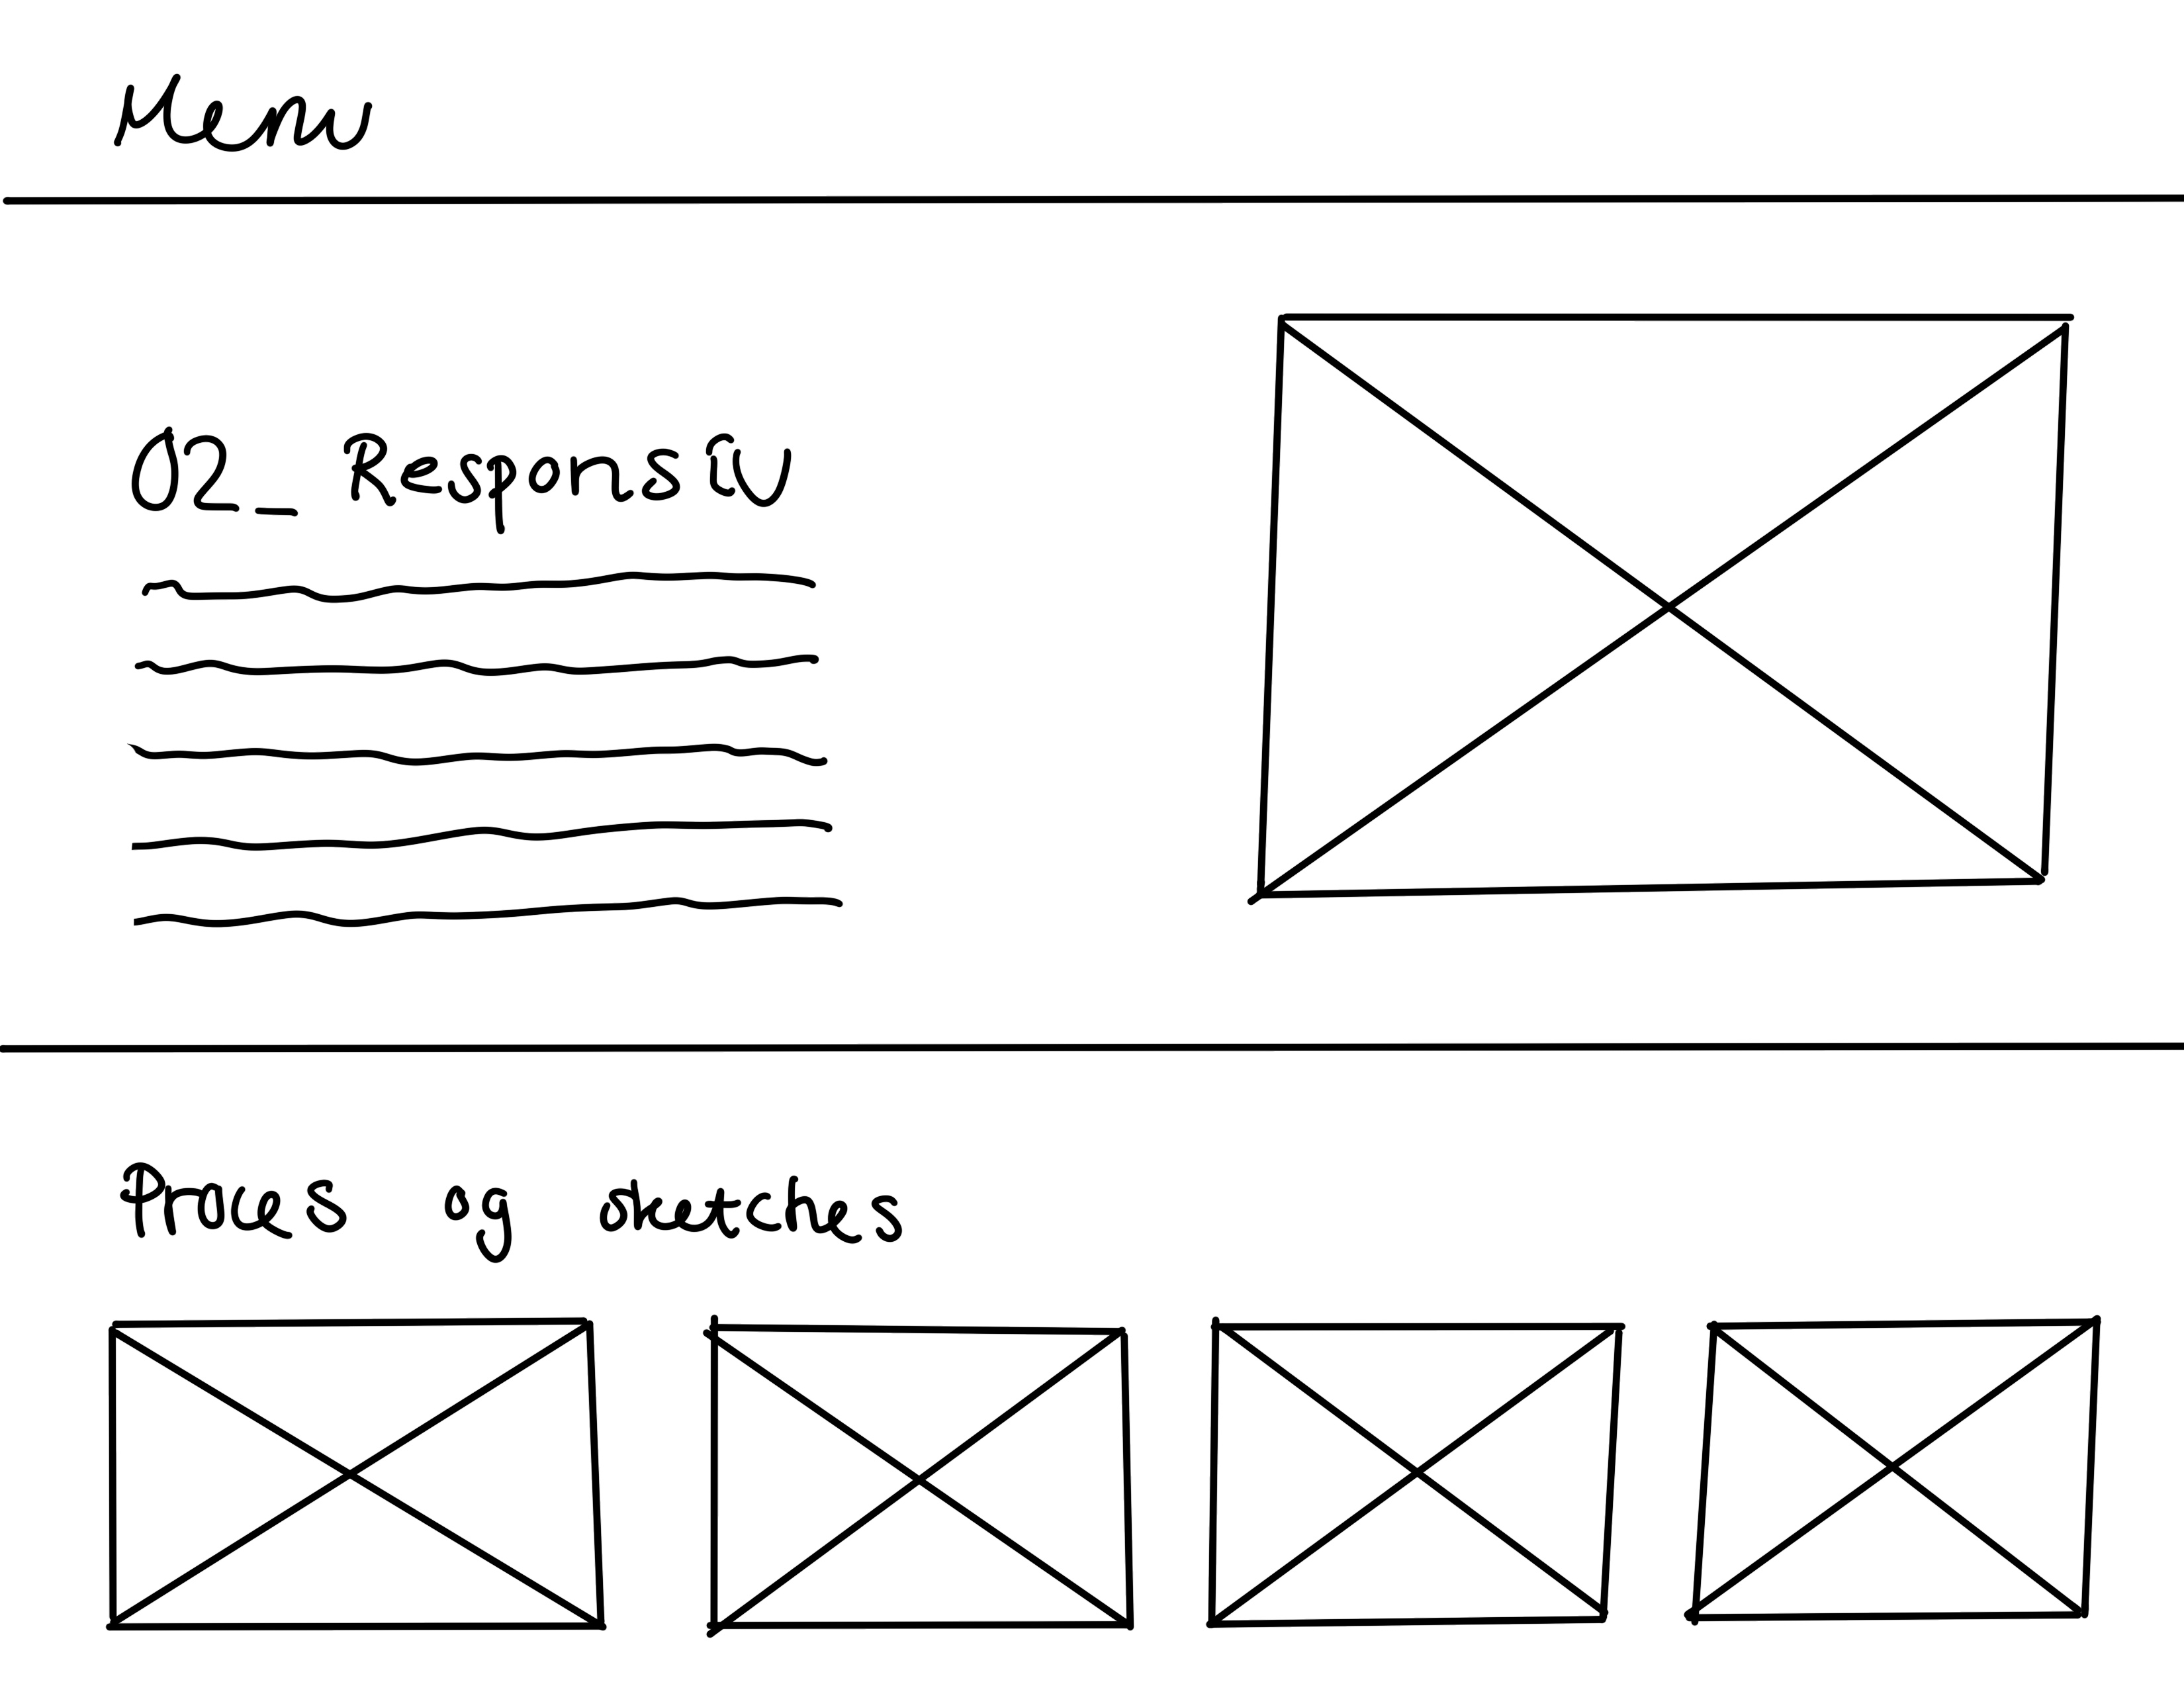 Menu
02_ Responsiv
Proces og sketches